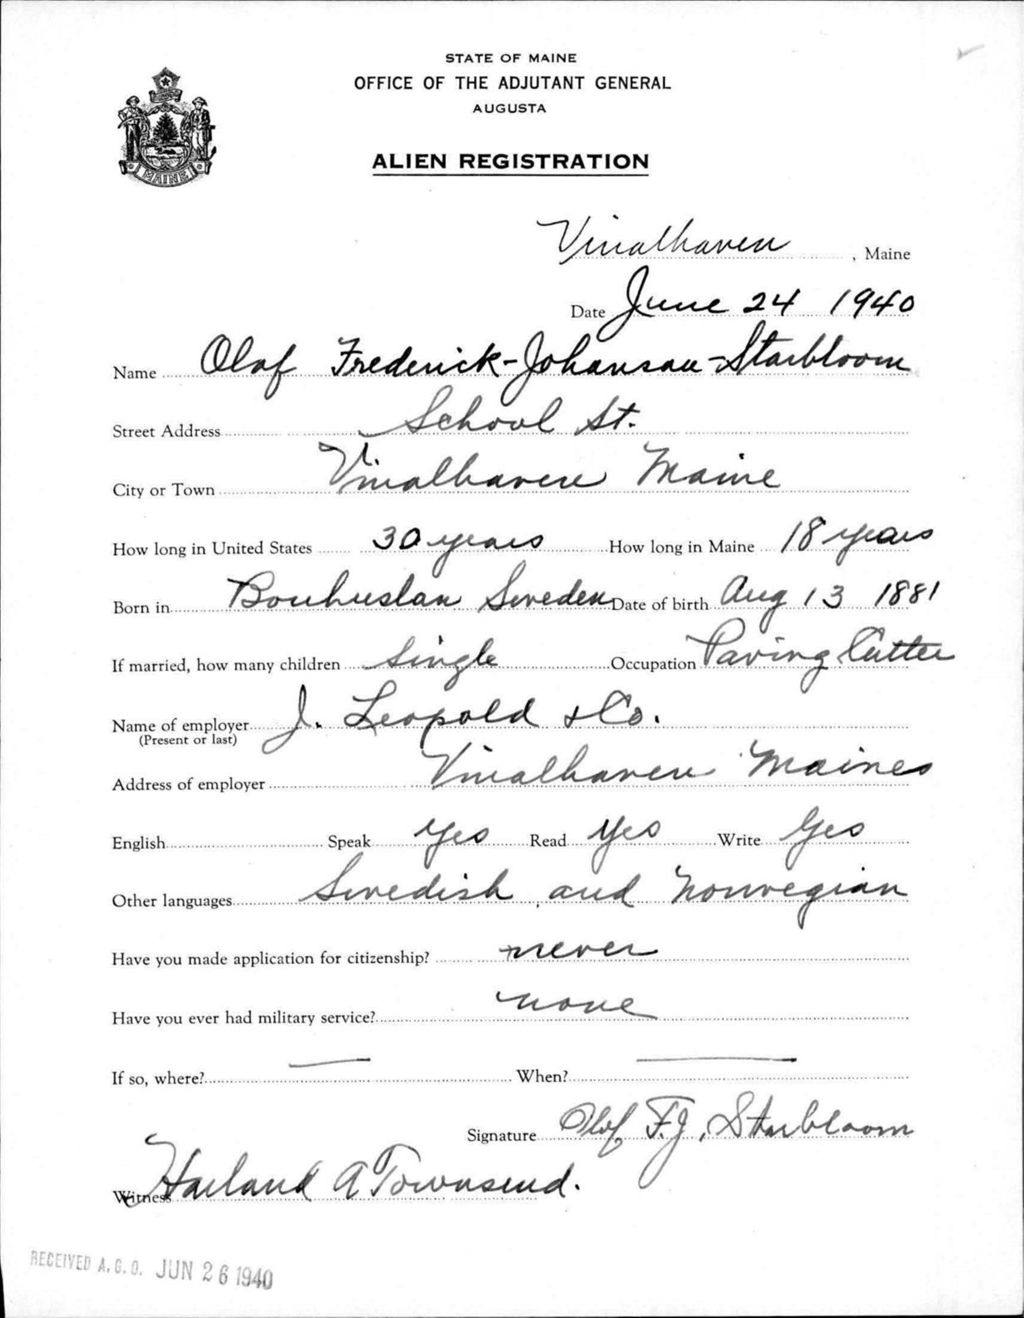 STATE OF MAINE
OFFICE OF THE ADJUTANT GENERAL
AUGUSTA
ALIEN REGISTRATION
MAINE
Vinalhaven, Maine
Date June 24 1940
Name Olaf Frederick-Johansau-Starbloom
Street Address School St.
City or Town Vinalhaven Maine
How long in United States 30 years How long in Maine 18 years
Born in Bouhuslan Sweden Date of birth Aug 13 1881
If married, how many children Single Occupation Paving Cutter
Name of employer J. Leopold & Co.
(Present or last)
Address of employer Vinalhaven Maine
English Speak Yes Read Yes Write Yes
Other languages Swedish and Norwegian
Have you made application for citizenship? never
Have you ever had military service? none
If so, where? — When? —
Signature Olof F.J. Starbloom
Witness Harland A Townsend.
RECEIVED A.G.O. JUN 26 1940